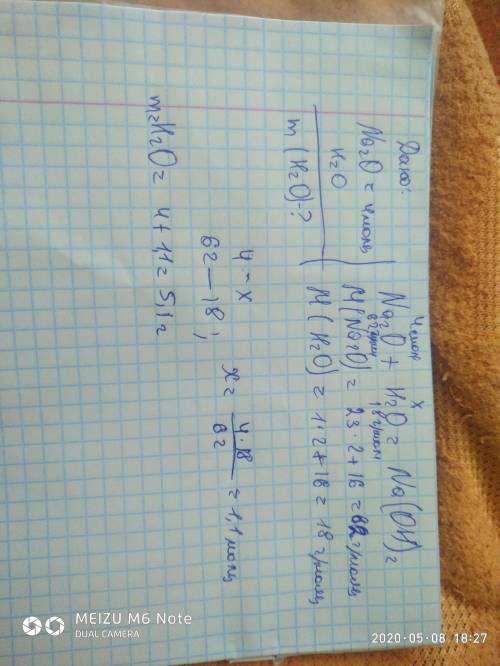 Дано:
Na₂O = 4моль
H₂O
m(H₂O)-?
4моль x
Na₂O + H₂O = Na(OH)₂
62г/моль 18г/моль
M(Na₂O) = 23·2+16 = 62г/моль
M(H₂O) = 1·2+16 = 18г/моль
4 – x
62 – 18;
x = 4·18/62 = 1,1моль
m₂H₂O = 4+1,1 = 5,1г
MEIZU M6 Note
DUAL CAMERA
2020-05-08 18:27